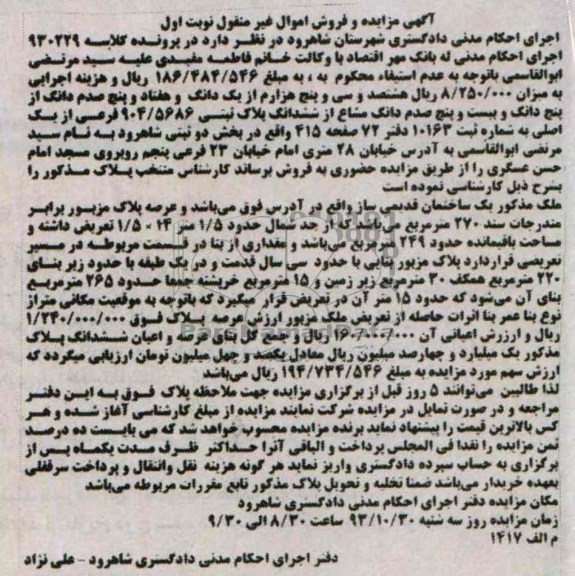 آگهی مزایده و فروش اموال غیر منقول نوبت اول
اجرای احکام مدنی دادگستری شهرستان شاهرود در نظر دارد در پرونده کلاسه ۹۳۰۲۲۹
اجرای احکام مدنی له بانک مهر اقتصاد با وکالت خانم فاطمه مفیدی علیه سید مرتضی
ابوالقاسمی باتوجه به عدم استیفاء محکوم به ، به مبلغ ۱۸۶/۴۸۴/۵۴۶ ریال و هزینه اجرایی
به میزان ۸/۲۵۰/۰۰۰ ریال هشتصد و سی و پنج هزارم از یک دانگ و هفتاد و پنج صدم دانگ از
پنج دانگ و بیست و پنج صدم دانگ مشاع از ششدانگ پلاک ثبتی ۹۰۴/۵۶۸۶ فرعی از یک
اصلی به شماره ثبت ۱۰۱۶۳ دفتر ۷۲ صفحه ۴۱۵ واقع در بخش دو ثبتی شاهرود به نام سید
مرتضی ابوالقاسمی به آدرس خیابان ۲۸ متری امام خیابان ۲۳ فرعی پنجم روبروی مسجد امام
حسن عسگری را از طریق مزایده حضوری به فروش برساند کارشناس منتخب پلاک مذکور را
بشرح ذیل کارشناسی نموده است
ملک مذکور یک ساختمان قدیمی ساز واقع در آدرس فوق می‌باشد و عرصه پلاک مزبور برابر
مندرجات سند ۲۷۰ مترمربع می‌باشد که از حد شمال حدود ۱/۵ متر ۱۴ × ۱/۵ تعریض داشته و
مساحت باقیمانده حدود ۲۴۹ مترمربع می‌باشد و مقداری از بنا در قسمت مربوطه در مسیر
تعریضی قراردارد پلاک مزبور بنایی با حدود سی سال قدمت و در یک طبقه با حدود زیر بنای
۲۲۰ مترمربع همکف ۳۰ مترمربع زیر زمین و ۱۵ مترمربع خرپشته جمعا حدود ۲۶۵ مترمربع
بنای آن می‌شود که حدود ۱۵ متر آن در تعریض قرار میگیرد که باتوجه به موقعیت مکانی متراژ
نوع بنا عمر بنا اثرات حاصله از تعریض ملک مزبور ارزش عرصه پلاک فوق ۱/۲۴۰/۰۰۰/۰۰۰
ریال و ارزش اعیانی آن ۱۶۰/۰۰۰/۰۰۰ ریال و جمع کل بنای عرصه و اعیان ششدانگ پلاک
مذکور یک میلیارد و چهارصد میلیون ریال معادل یکصد و چهل میلیون تومان ارزیابی میگردد که
ارزش سهم مورد مزایده به مبلغ ۱۹۴/۷۳۴/۵۴۶ ریال می‌باشد
لذا طالبین می‌توانند ۵ روز قبل از برگزاری مزایده جهت ملاحظه پلاک فوق به این دفتر
مراجعه و در صورت تمایل در مزایده شرکت نمایند مزایده از مبلغ کارشناسی آغاز شده و هر
کس بالاترین قیمت را پیشنهاد نماید برنده مزایده محسوب خواهد شد که می بایست ده درصد
ثمن مزایده را نقدا فی المجلس پرداخت و الباقی آنرا حداکثر ظرف مدت یکماه پس از
برگزاری به حساب سپرده دادگستری واریز نماید هر گونه هزینه نقل وانتقال و پرداخت سرقفلی
بعهده خریدار می‌باشد ضمنا تخلیه و تحویل پلاک مذکور تابع مقررات مربوطه می‌باشد
مکان مزایده دفتر اجرای احکام مدنی دادگستری شاهرود
زمان مزایده روز سه شنبه ۹۳/۱۰/۳۰ ساعت ۸/۳۰ الی ۹/۳۰
م الف ۱۴۱۷
دفتر اجرای احکام مدنی دادگستری شاهرود - علی نژاد